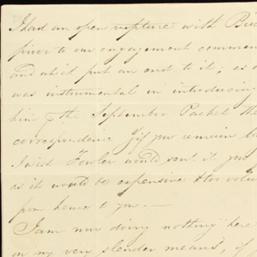 I had an open rupture with
prior to our engagement
and which put an end to it; as
was instrumental in introducing
him & the September Packet the
correspondence if you remain
I wish would sent it you
as it would be expensive
from hence to you.—
I am now doing nothing here
on my very slender means, if